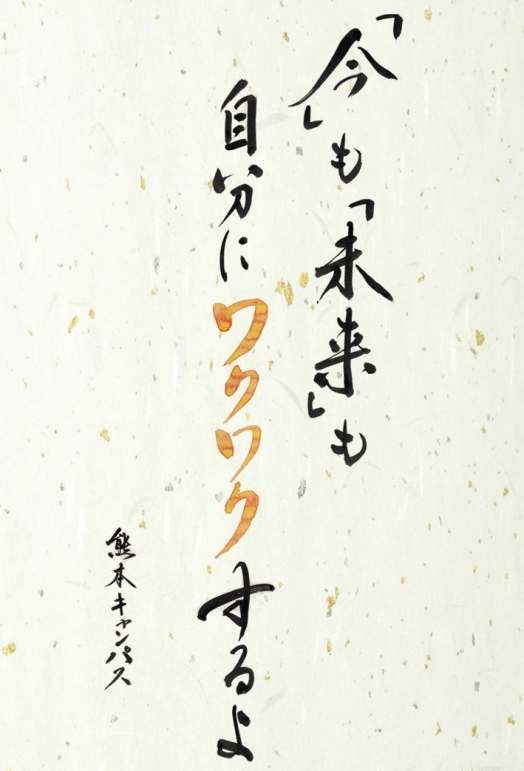 「今」も「未来」も
自分にワクワクするよ
熊本キャンパス